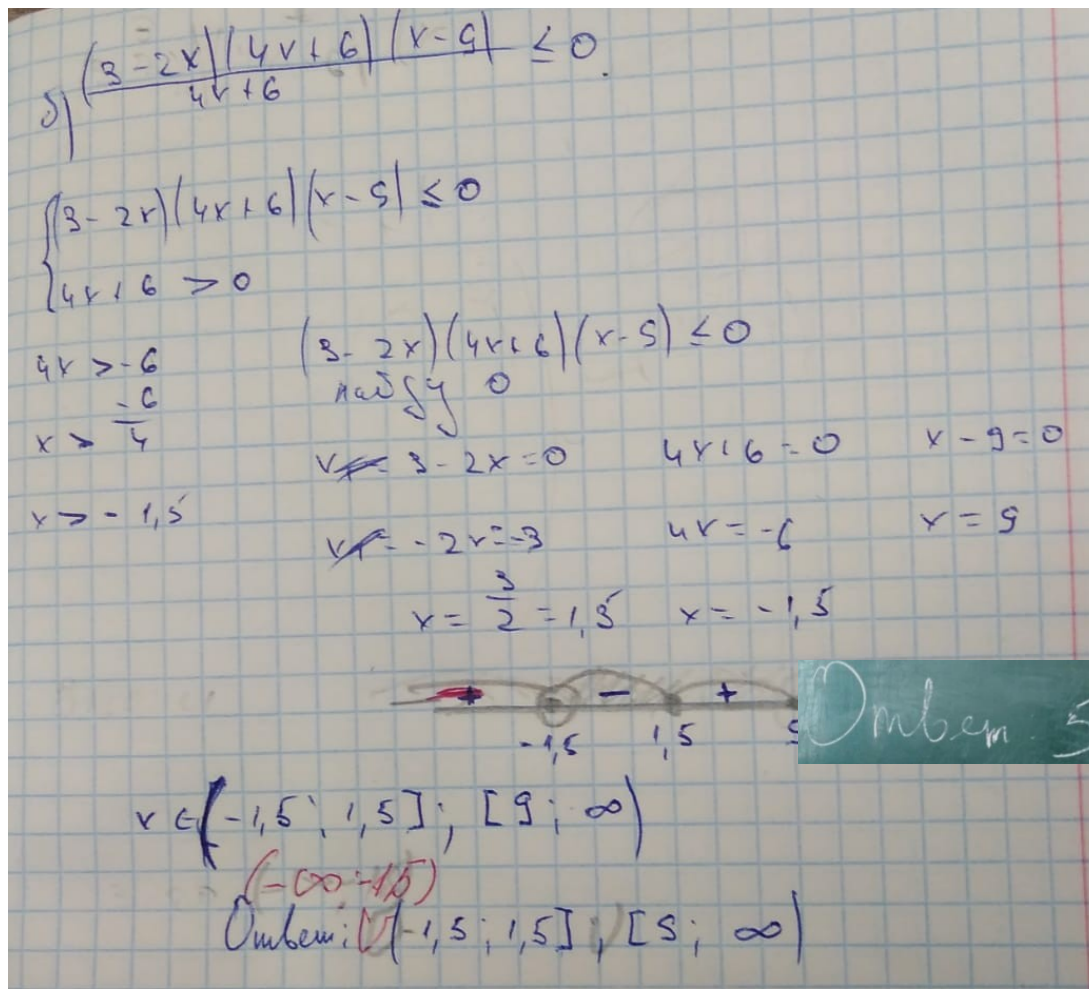 б) (3-2x)(4x+6)(x-9) / 4x+6 ≤ 0.
{(3-2x)(4x+6)(x-9) ≤ 0
{4x+6 > 0
4x > -6
x > -6/4
x > -1,5
(3-2x)(4x+6)(x-9) ≤ 0
найду 0
3-2x=0 4x+6=0 x-9=0
-2x=-3 4x=-6 x=9
x = 3/2 = 1,5 x = -1,5
+ - +
-1,5 1,5
Ответ
x ∈ (-1,5; 1,5]; [9; ∞)
(-∞;-1,5)
Ответ: U(-1,5; 1,5]; [9; ∞)